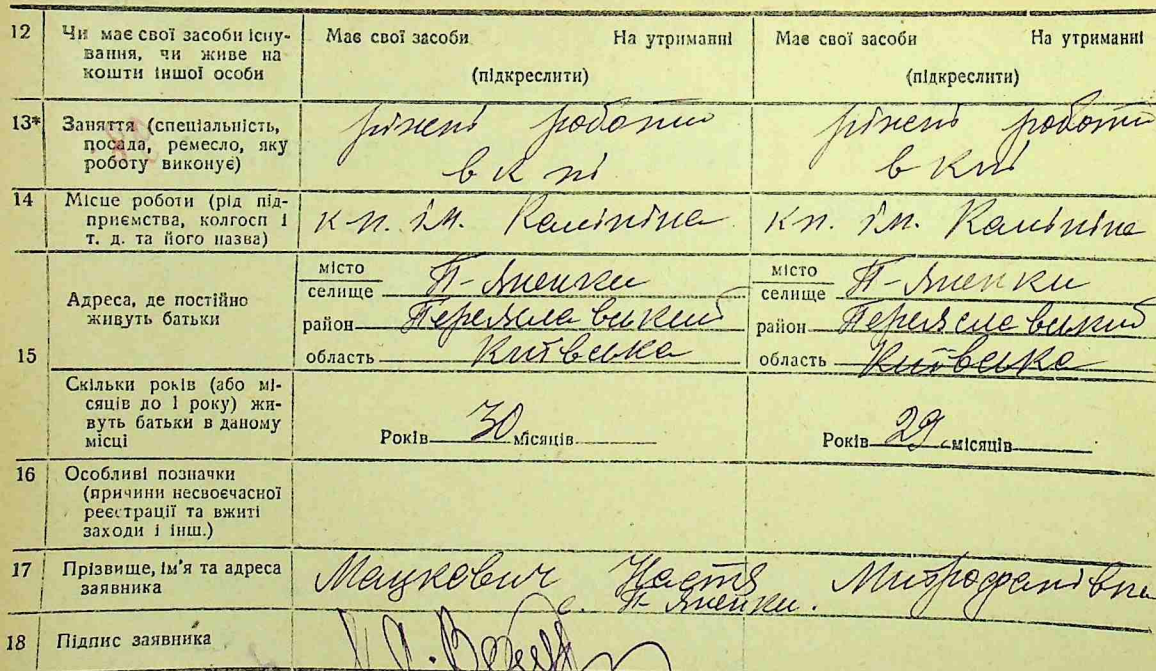 12 Чи має свої засоби існу-
вання, чи живе на
кошти іншої особи
Має свої засоби На утриманні
(підкреслити)
Має свої засоби На утриманні
(підкреслити)
13* Заняття (спеціальність,
посада, ремесло, яку
роботу виконує)
різні роботи
в к-пі
різні роботи
в к-пі
14 Місце роботи (рід під-
приємства, колгосп і
т. д. та його назва)
к-п. ім. Калініна
к-п. ім. Калініна
15 Адреса, де постійно
живуть батьки
місто
селище П-Яненки
район Переяславський
область Київська
місто
селище П-Яненки
район Переяславський
область Київська
Скільки років (або мі-
сяців до 1 року) жи-
вуть батьки в даному
місці
Років 30 місяців
Років 29 місяців
16 Особливі позначки
(причини несвоєчасної
реєстрації та вжиті
заходи і інш.)
17 Прізвище, ім'я та адреса
заявника
Мацкович Настя Митрофанівна
с. П-Яненки.
18 Підпис заявника